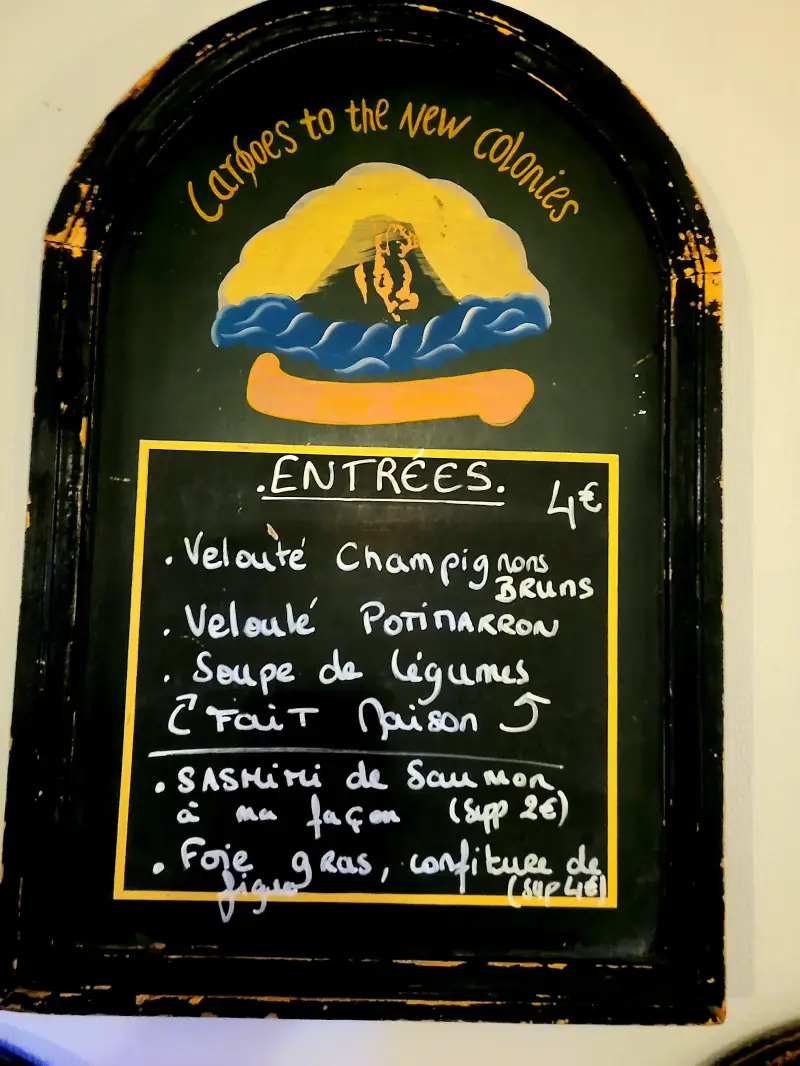 Cargoes to the New Colonies
.ENTRÉES.
4€
. Velouté Champignons
BRUNS
. Velouté POTIMARRON
. Soupe de légumes
FAIT Maison
. SASHIMI de Saumon
à ma façon (Supp 2€)
. Foie gras, confiture de
figue (sup 4€)